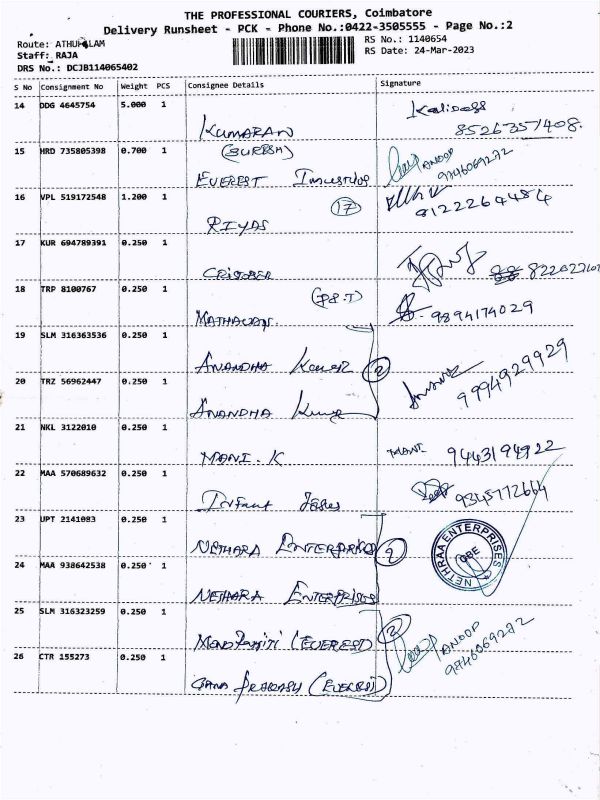 THE PROFESSIONAL COURIERS, Coimbatore
Delivery Runsheet - PCK - Phone No.:0422-3505555 - Page No.:2
Route: ATHUPALAM
RS No.: 1140654
Staff: RAJA
RS Date: 24-Mar-2023
DRS No.: DCJB114065402
S No Consignment No Weight PCS Consignee Details Signature
14 DDG 4645754 5.000 1
KUMARAN
8526357408.
15 HRD 735805398 0.700 1
(SURESH)
ANOOP
9746069272
EVEREST
16 VPL 519172548 1.200 1
17
8122264484
RIYAS
17 KUR 694789391 0.250 1
CRISTOBER
18 TRP 8100767 0.250 1
9894174029
19 SLM 316363536 0.250 1
ANANDHA Kumar 2
20 TRZ 56962447 0.250 1
9994929929
ANANDHA Kumar
21 NKL 3122010 0.250 1
MANI 9443194922
MANI.K
22 MAA 570689632 0.250 1
9345772664
Infant
23 UPT 2141083 0.250 1
NETHARA ENTERPRISES 2
NETHRAA ENTERPRISES
CBE
24 MAA 938642538 0.250 1
NETHARA ENTERPRISES
25 SLM 316323259 0.250 1
(EVEREST) 2
ANOOP
9746069272
26 CTR 155273 0.250 1
(EVEREST)